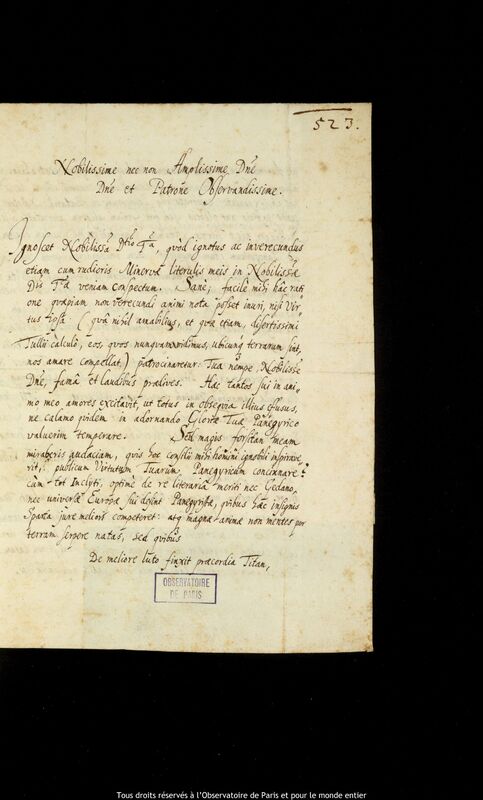 523.
Nobilissime nec non Amplissime Dne
Dne et Patrone Observandissime.
Ignoscet Nobilissa Dtio Ta, quòd ignotus ac inverecundus
etiam cum rudioris Minervæ literulis meis in Nobilissæ
Dis Tæ veniam conspectum. Sanè, facile mihi hâc rati
one quæpiam non verecundi animi nota posset inuri, nisi Vir-
tus ipsa (quâ nihil amabilius, et quæ etiam, disertissimi
Tullii calculô, eos, quos nunquam vidimus, ubicunq terrarum sint,
nos amare compellat) patrocinaretur: Tua nempe, Nobilisse
Dne, famâ et laudibus proclives. Hæc tantos sui in ani-
mo meo amores excitavit, ut totus in obsequia illius effusus,
ne calamo qvidem in adornando Gloriæ Tuæ Panegyrico
valuerim temperare. Sed magis forsitan meam
miraberis audaciam, quis hoc consilii mihi homini ignobili inspirave-
rit, publicum Virtutum Tuarum Panegyricum concinnare?
cùm tot Inclyti, optimè de re literaria meriti nec Gedano,
nec universæ Europæ sui desint Panegyristæ, quibus hæc insignis
Sparta jure meliori competeret: atq magnæ animæ non mentes per
terram serpere natæ, sed quibus
De meliore luto finxit præcordia Titan,
OBSERVATOIRE
DE PARIS
Tous droits réservés à l'Observatoire de Paris et pour le monde entier